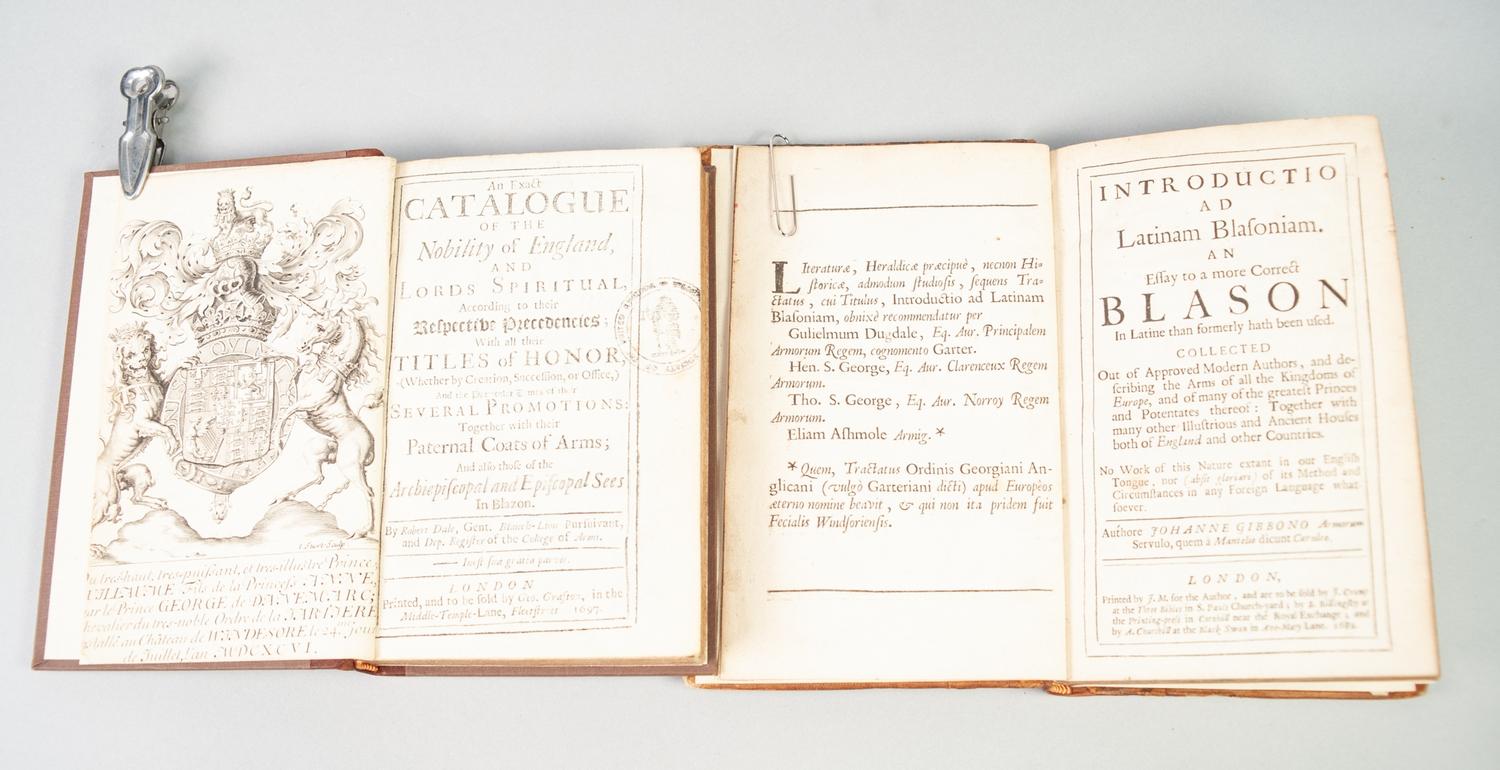 QVI
I Sturt Sculp
tres-haut, tres-puissant, et tres-illustre Prince
Fils de la Princess ANNE,
par le Prince GEORGE de DANEMARC;
du tres-noble Ordre de la JARTIERE
au Château de WINDESORE le 24.me jour
de Juillet, l'an MDCXCVI.
An Exact
CATALOGUE
OF THE
Nobility of England,
AND
LORDS SPIRITUAL,
According to their
Respective Precedencies;
With all their
TITLES of HONOR,
(Whether by Creation, Succession, or Office,)
And the Particular Times of their
SEVERAL PROMOTIONS:
Together with their
Paternal Coats of Arms;
And also those of the
Archiepiscopal and Episcopal Sees
In Blazon.
By Robert Dale, Gent. Blanch-Lion Pursuivant,
and Dep. Register of the College of Arms.
Inest sua gratia parvis.
LONDON
Printed, and to be sold by Geo. Grafton, in the
Middle-Temple-Lane, Fleetstreet 1697.
LIteraturæ, Heraldicæ præcipuè, necnon Hi-
ſtoricæ, admodum ſtudioſis, ſequens Tra-
ctatus, cui Titulus, Introductio ad Latinam
Blaſoniam, obnixè recommendatur per
Gulielmum Dugdale, Eq. Aur. Principalem
Armorum Regem, cognomento Garter.
Hen. S. George, Eq. Aur. Clarenceux Regem
Armorum.
Tho. S. George, Eq. Aur. Norroy Regem
Armorum.
Eliam Aſhmole Armig. *
* Quem, Tractatus Ordinis Georgiani An-
glicani (vulgò Garteriani dicti) apud Europèos
æterno nomine beavit, & qui non ita pridem fuit
Fecialis Windſorienſis.
INTRODUCTIO
AD
Latinam Blaſoniam.
AN
Eſſay to a more Correct
BLASON
In Latine than formerly hath been uſed.
COLLECTED
Out of Approved Modern Authors, and de-
ſcribing the Arms of all the Kingdoms of
Europe, and of many of the greateſt Princes
and Potentates thereof: Together with
many other Illuſtrious and Ancient Houſes
both of England and other Countries.
No Work of this Nature extant in our Engliſh
Tongue, nor (abſit gloriari) of its Method and
Circumſtances in any Foreign Language what-
ſoever.
Authore JOHANNE GIBBONO Armorum
Servulo, quem à Mantelio dicunt Cæruleo.
LONDON,
Printed by J. M. for the Author, and are to be ſold by J. Crump
at the Three Bibles in S. Pauls Church-yard; by B. Billingſley at
the Printing-preſs in Cornhill near the Royal Exchange; and
by A. Churchill at the Black Swan in Ave-Mary Lane. 1682.